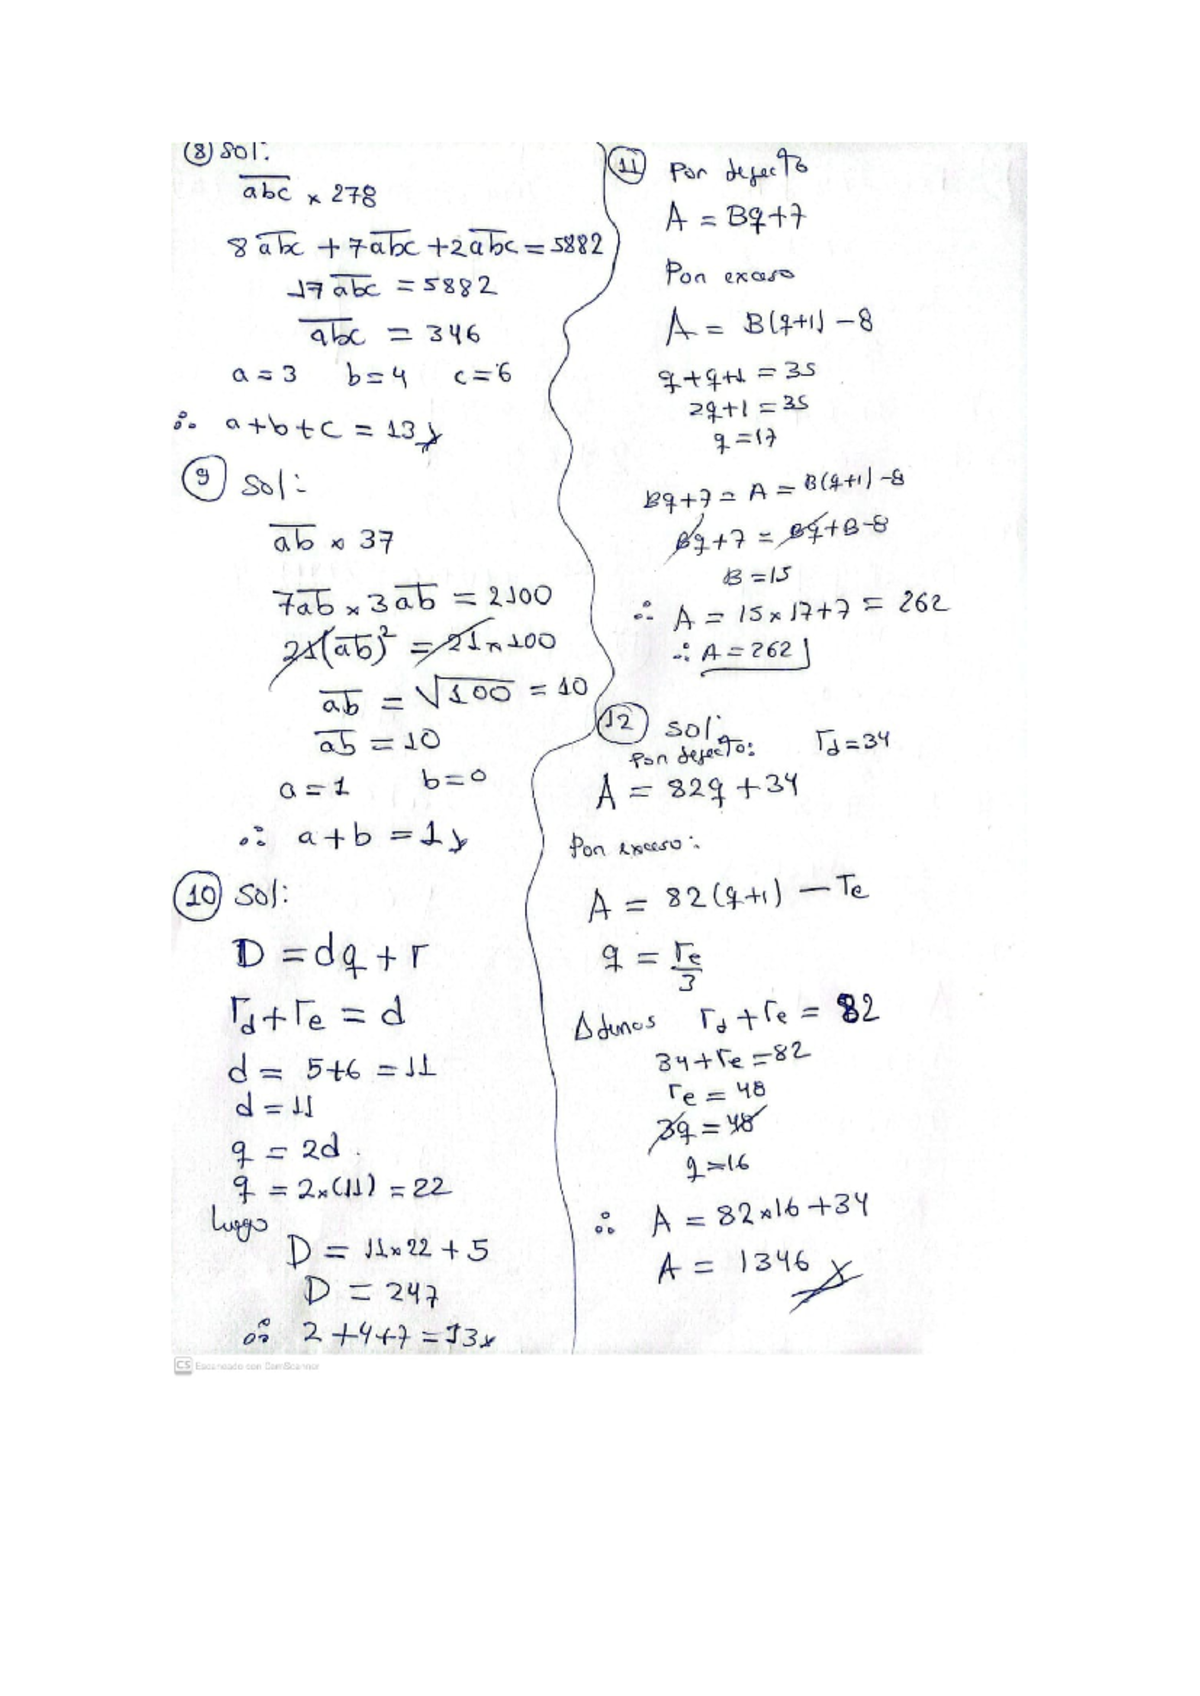 (8) Sol:
abc x 278
8 abc + 7 abc + 2 abc = 5882
17 abc = 5882
abc = 346
a = 3 b = 4 c = 6
∴ a + b + c = 13
(9) Sol:
ab x 37
7ab x 3 ab = 2100
21(ab)² = 21 x 100
ab = √100 = 10
ab = 10
a = 1 b = 0
∴ a + b = 1
(10) Sol:
D = dq + r
rd + re = d
d = 5+6 = 11
d = 11
q = 2d
q = 2x(11) = 22
luego
D = 11x22 + 5
D = 247
∴ 2 + 4 + 7 = 13
(11) Por defecto
A = Bq + 7
Por exceso
A = B(q+1) - 8
q + q+1 = 35
2q+1 = 35
q = 17
Bq + 7 = A = B(q+1) - 8
Bq + 7 = Bq + B - 8
B = 15
∴ A = 15 x 17 + 7 = 262
∴ A = 262
(12) Sol:
Por defecto: rd = 34
A = 82q + 34
Por exceso:
A = 82(q+1) - re
q = re/3
Ademas rd + re = 82
34 + re = 82
re = 48
3q = 48
q = 16
∴ A = 82 x 16 + 34
A = 1346
CS Escaneado con CamScanner